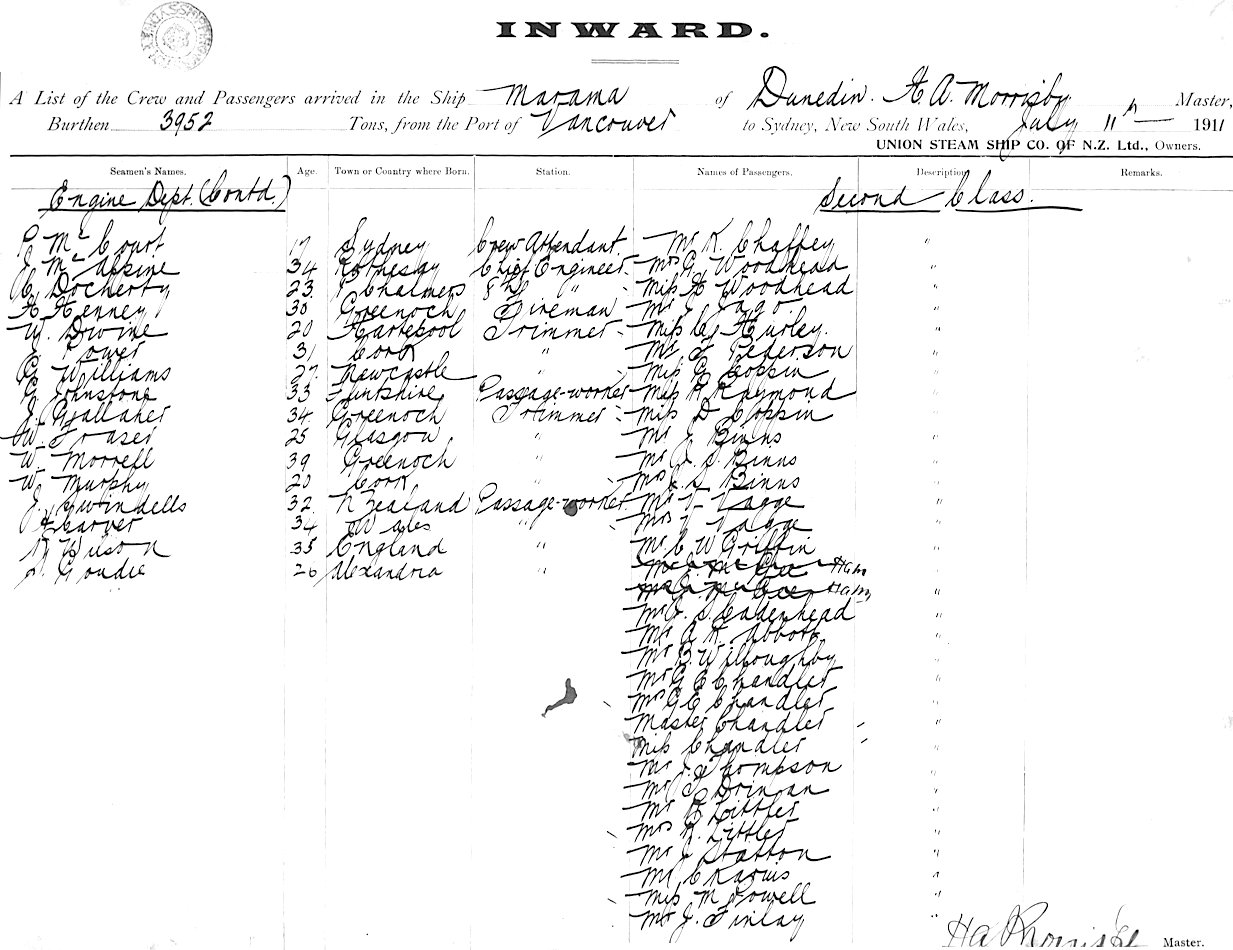 INWARD.
A List of the Crew and Passengers arrived in the Ship Marama of Dunedin. H. A. Morrisby Master,
Burthen 3952 Tons, from the Port of Vancouver to Sydney, New South Wales, July 11th 1911
UNION STEAM SHIP CO. OF N.Z. Ltd., Owners.
Seamen's Names. Age. Town or Country where Born. Station. Names of Passengers. Description Remarks.
Engine Dept. (Contd.) Second Class.
McCourt 17 Sydney Crew Attendant Mr K. Chaffey "
McAlpine 34 Rothesay Chief Engineer Mrs G. Woodhead "
Docherty 23 P Chalmers 8th " Miss H Woodhead "
H. Kenney 30 Greenock Fireman Mr J. Jago. "
W. Divine 20 Hartepool Trimmer Miss C. Hurley. "
Power 31 Cork " Mr Pederson "
Williams 27 Newcastle " Miss G Coppin "
Johnstone 33 Flintshire Passage-worker Miss R Raymond "
J. Gallaher 34 Greenoch Trimmer Miss D Coppin "
W. Fraser 25 Glasgow " Mr J Binns "
W Morrell 39 Greenoch " Mr J. S. Binns "
W. Murphy 20 Cork " Mrs Binns "
J. Swindells 32 N Zealand Passage-worker Mr V Vagge "
Carver 34 Wales " Mrs V Vagge "
Wilson 35 England " Mr C W Griffin "
Goudie 26 Alexandria " HAM
HAM "
Mr C. S. Cadenhead "
Mr A K. Abbott "
Mr B Willoughby "
Mr G E Chandler "
Mrs G E Chandler "
Master Chandler "
Miss Chandler "
Mr J. Thompson "
Mr Drinan "
Mr R Littler "
Mrs R. Littler "
Mr J Statton "
Mr C "
Miss M Powell "
Mr J. Finlay "
Master.